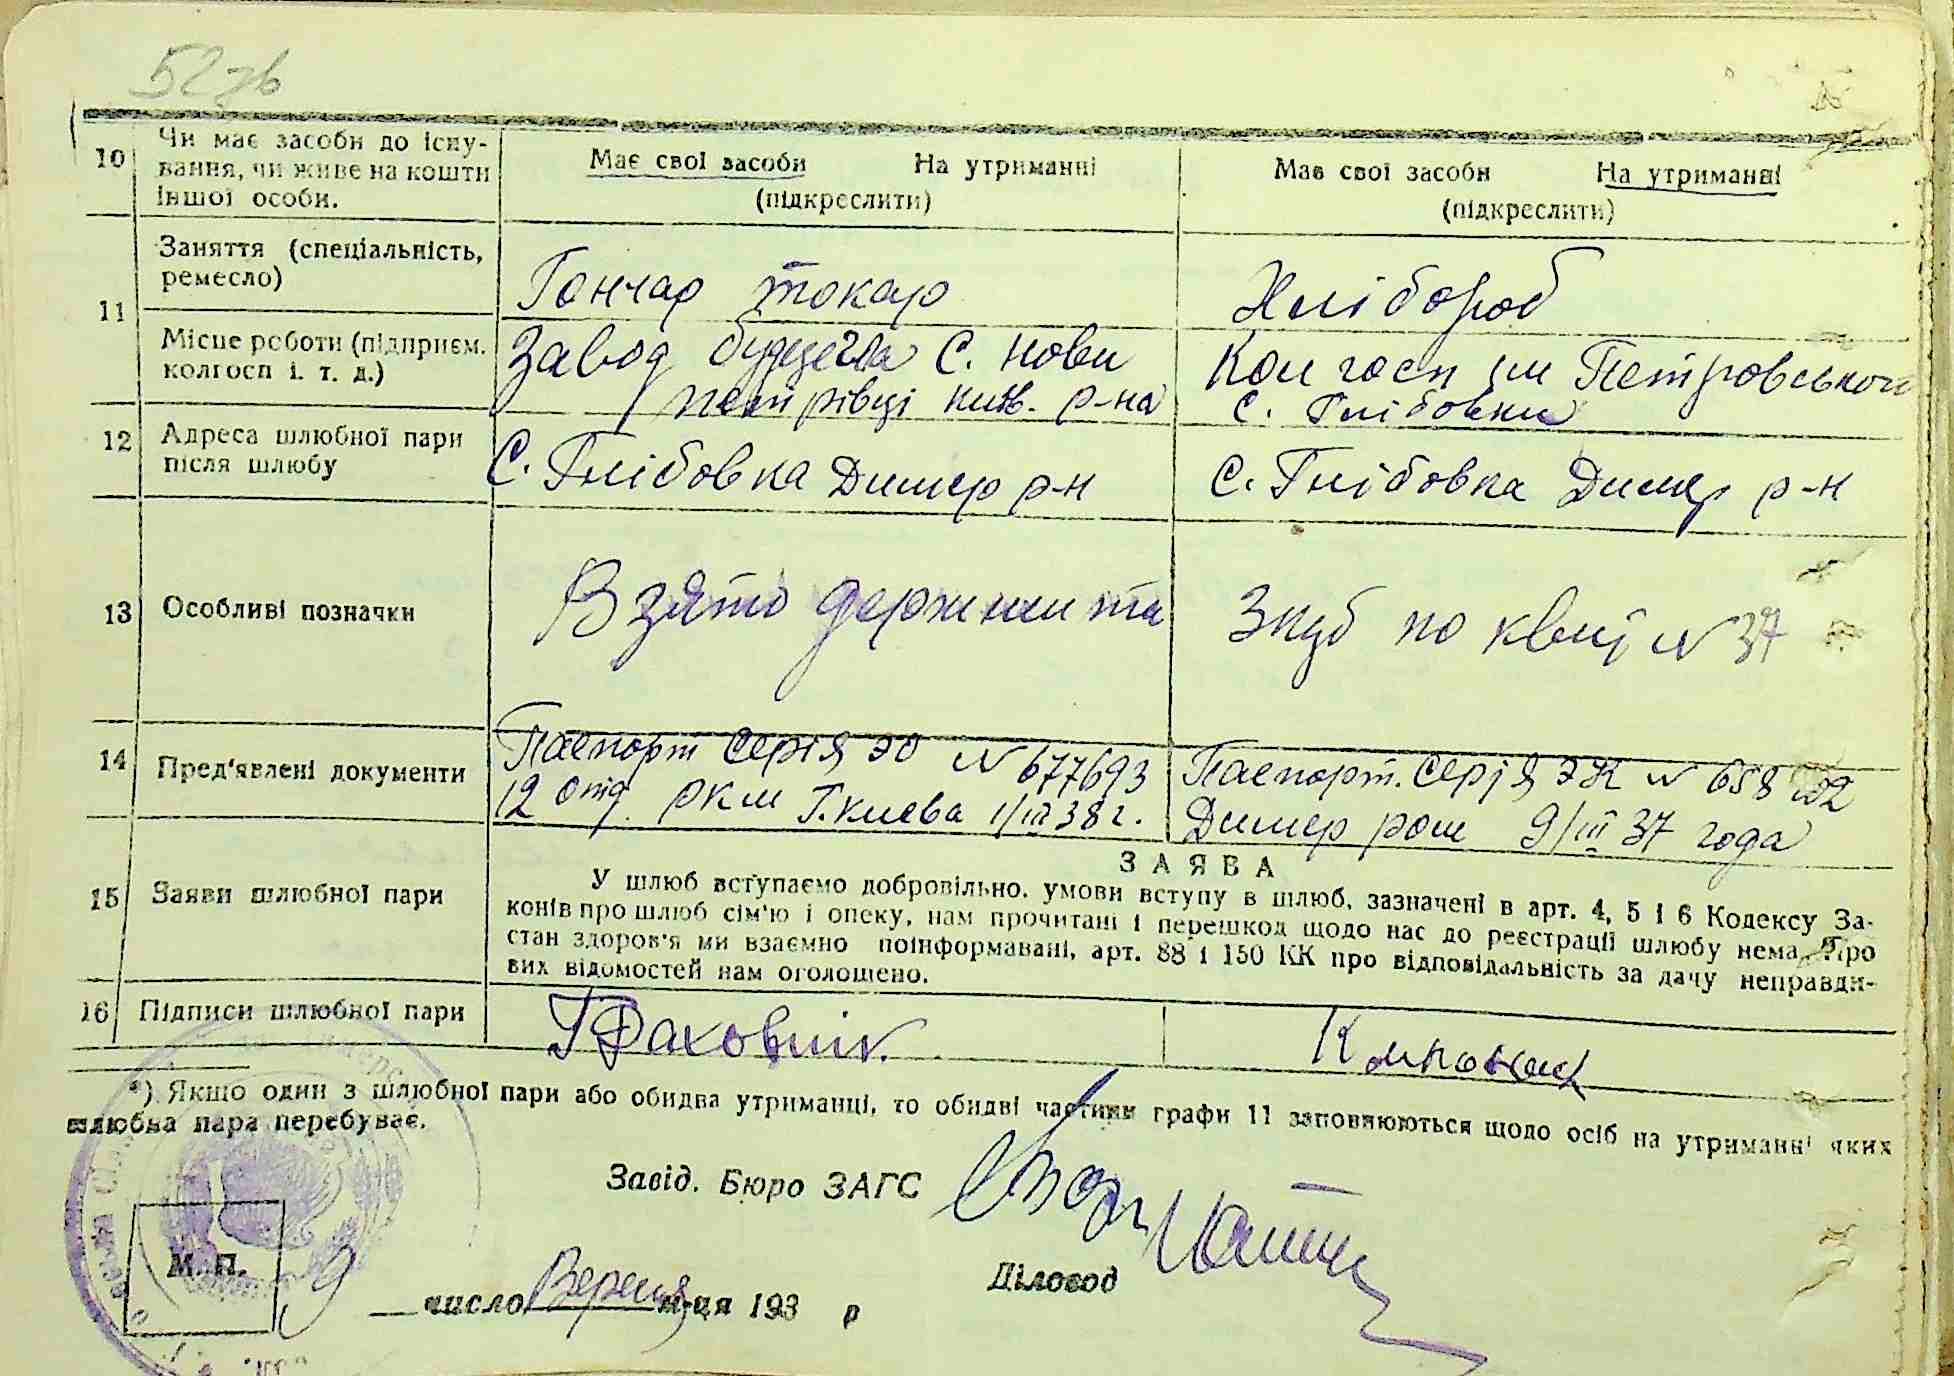 52 зв
10 Чи має засоби до існу-
вання, чи живе на кошти
іншої особи.
Має свої засоби На утриманні
(підкреслити)
Має свої засоби На утриманні
(підкреслити)
11 Заняття (спеціальність,
ремесло)
Гончар токар
Хлібороб
Місце роботи (підприєм.
колгосп і. т. д.)
Завод С. нови
петрівці київ. р-на
Колгосп ім Петровського
с. Глібовки
12 Адреса шлюбної пари
після шлюбу
С. Глібовка Димер р-н
с. Глібовка Димер р-н
13 Особливі позначки
Взято держмита
3 куб по квиц № 37
14 Пред'явлені документи
Паспорт Серія ЭО № 677693
12 отд. РКМ Г. Киева 1/III 38 г.
Паспорт. Серія ЭК № 658
Димер 9/III 37 года
15 Заяви шлюбної пари
ЗАЯВА
У шлюб вступаємо добровільно. умови вступу в шлюб, зазначені в арт. 4, 5 і 6 Кодексу За-
конів про шлюб сім'ю і опеку, нам прочитані і перешкод щодо нас до реєстрації шлюбу нема. Про
стан здоров'я ми взаємно поінформавані, арт. 88 і 150 КК про відповідальність за дачу неправди-
вих відомостей нам оголошено.
16 Підписи шлюбної пари
*) Якщо один з шлюбної пари або обидва утриманці, то обидві частини графи 11 заповнюються щодо осіб на утриманні яких
шлюбна пара перебуває.
Завід. Бюро ЗАГС
М. П.
9 число Вересня м-ця 193 р
Діловод